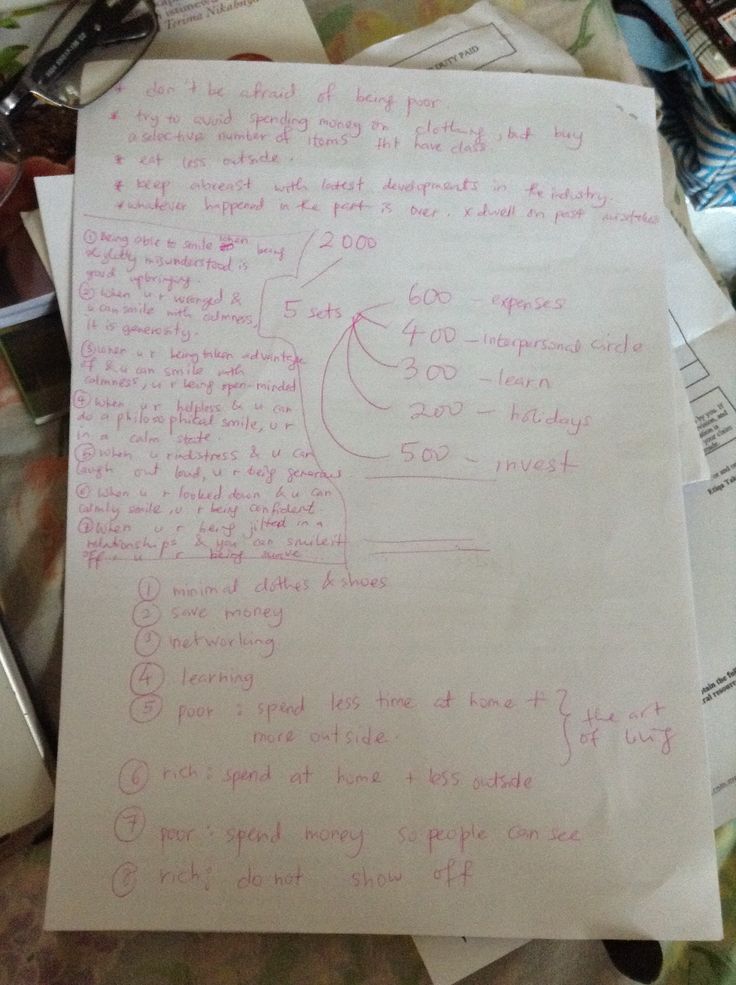 Terima Nikabnya
DUTY PAID
* don't be afraid of being poor.
* try to avoid spending money on clothing, but buy
a selective number of items tht have class.
* eat less outside.
* keep abreast with latest developments in the industry.
* whatever happened in the past is over. x dwell on past mistakes
① Being able to smile when being
slightly misunderstood is
good upbringing.
② When u r wronged &
u can smile with calmness,
it is generosity.
③ When u r being taken advantage
of & u can smile with
calmness, u r being open-minded
④ When u r helpless & u can
do a philosophical smile, u r
in a calm state.
⑤ When u r in distress & u can
laugh out loud, u r being generous
⑥ When u r looked down & u can
calmly smile, u r being confident.
⑦ When u r being jilted in a
relationships & you can smile it
off u r being suave
2000
5 sets
600 - expenses
400 - interpersonal circle
300 - learn
200 - holidays
500 - invest
① minimal clothes & shoes
② save money
③ networking
④ learning
⑤ poor : spend less time at home +
more outside.
} the art
of living
⑥ rich : spend at home + less outside
⑦ poor : spend money so people can see
⑧ rich : do not show off